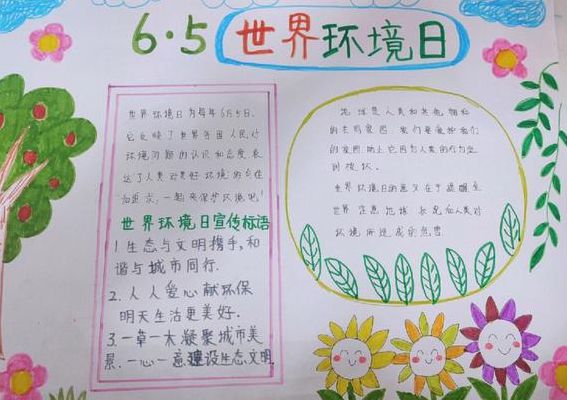 6·5 世界环境日
世界环境日为每年6月5日.
它反映了世界各国人民对
环境问题的认识和态度.表
达了人类对美好环境的向往
和追求,一起来保护环境吧!
世界环境日宣传标语
1.生态与文明携手,和
谐与城市同行.
2.人人爱心献环保
明天生活更美好.
3.一草一木凝聚城市美
景.一心一意建设生态文明.
地球是人类和其他物种
的共同家园.我们要爱护我们
的家园防止它因为人类的行为受
到破坏.
世界环境日的意义在于提醒全
世界注意地球状况和人类对
环境所造成的危害